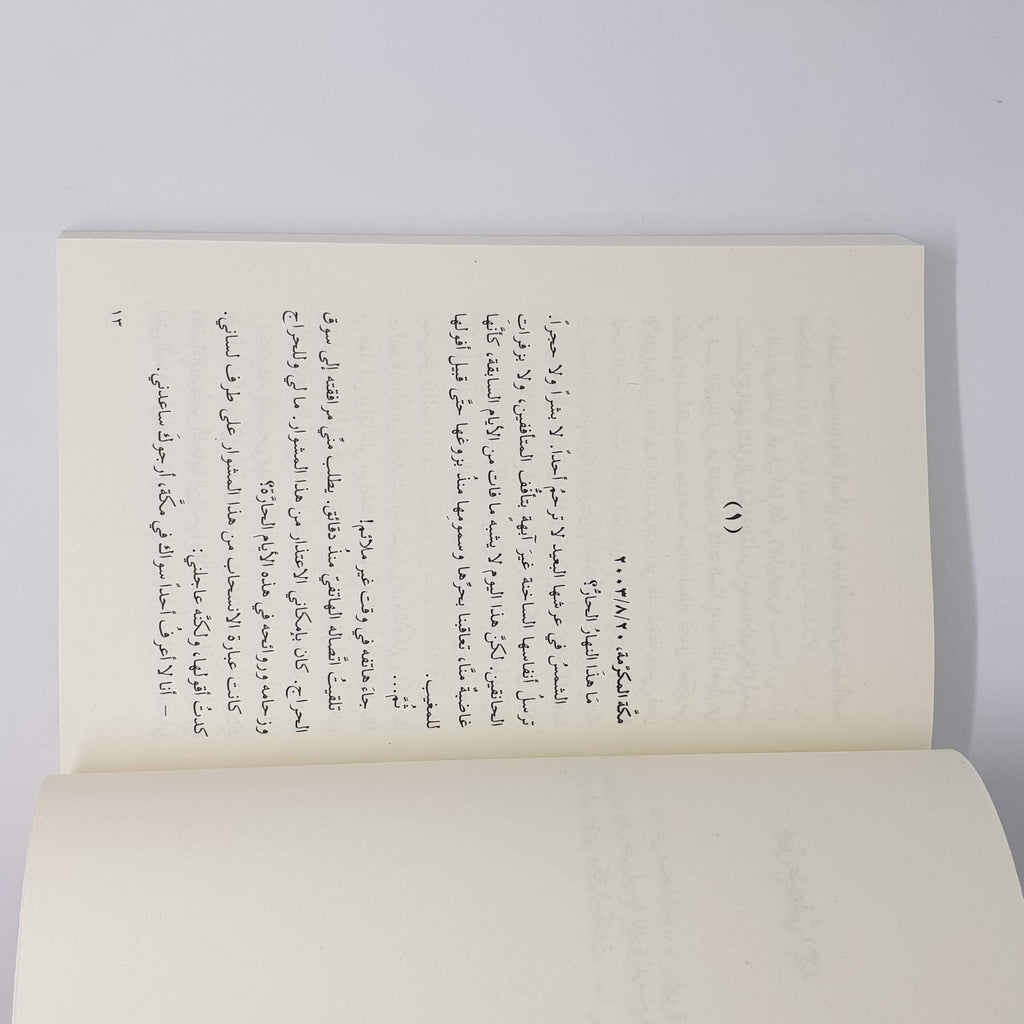 (١)
مكّة المكرّمة، ٢٠٠٣/٨/٢٠
مَا هَذَا النهارُ الحارُّ؟
الشمسُ في عرشها البعيد لا ترحمُ أحداً. لا بشراً ولا حجراً.
ترسلُ أنفاسها الساخنة غيرَ آبهةٍ بتأفّف المتأففين، ولا بزفرات
الحانقين. لكنَّ هذا اليوم لا يشبه ما فات من الأيام السابقة، كأنَّها
غاضبةٌ منَّا، تعاقبنا بحرِّها وسمومِها منذُ بزوغها حتَّى قبيل أفولها
للمغيب.
ثُم...
جاءَ هاتفه في وقت غير ملائم!
تلقيتُ اتَّصاله الهاتفيّ منذُ دقائق. يطلب منِّي مرافقته إلى سوق
الحراج. كان بإمكاني الاعتذار من هذا المشوار. ما لي وللحراج
وزحامه وروائحه في هذه الأيام الحارَّة؟
كانت عبارة الانسحاب من هذا المشوار على طرف لساني.
كدتُ أقولها، ولكنَّه عاجلني:
– أنا لا أعرفُ أحداً سواك في مكَّة، أرجوكَ ساعدني.
١٣